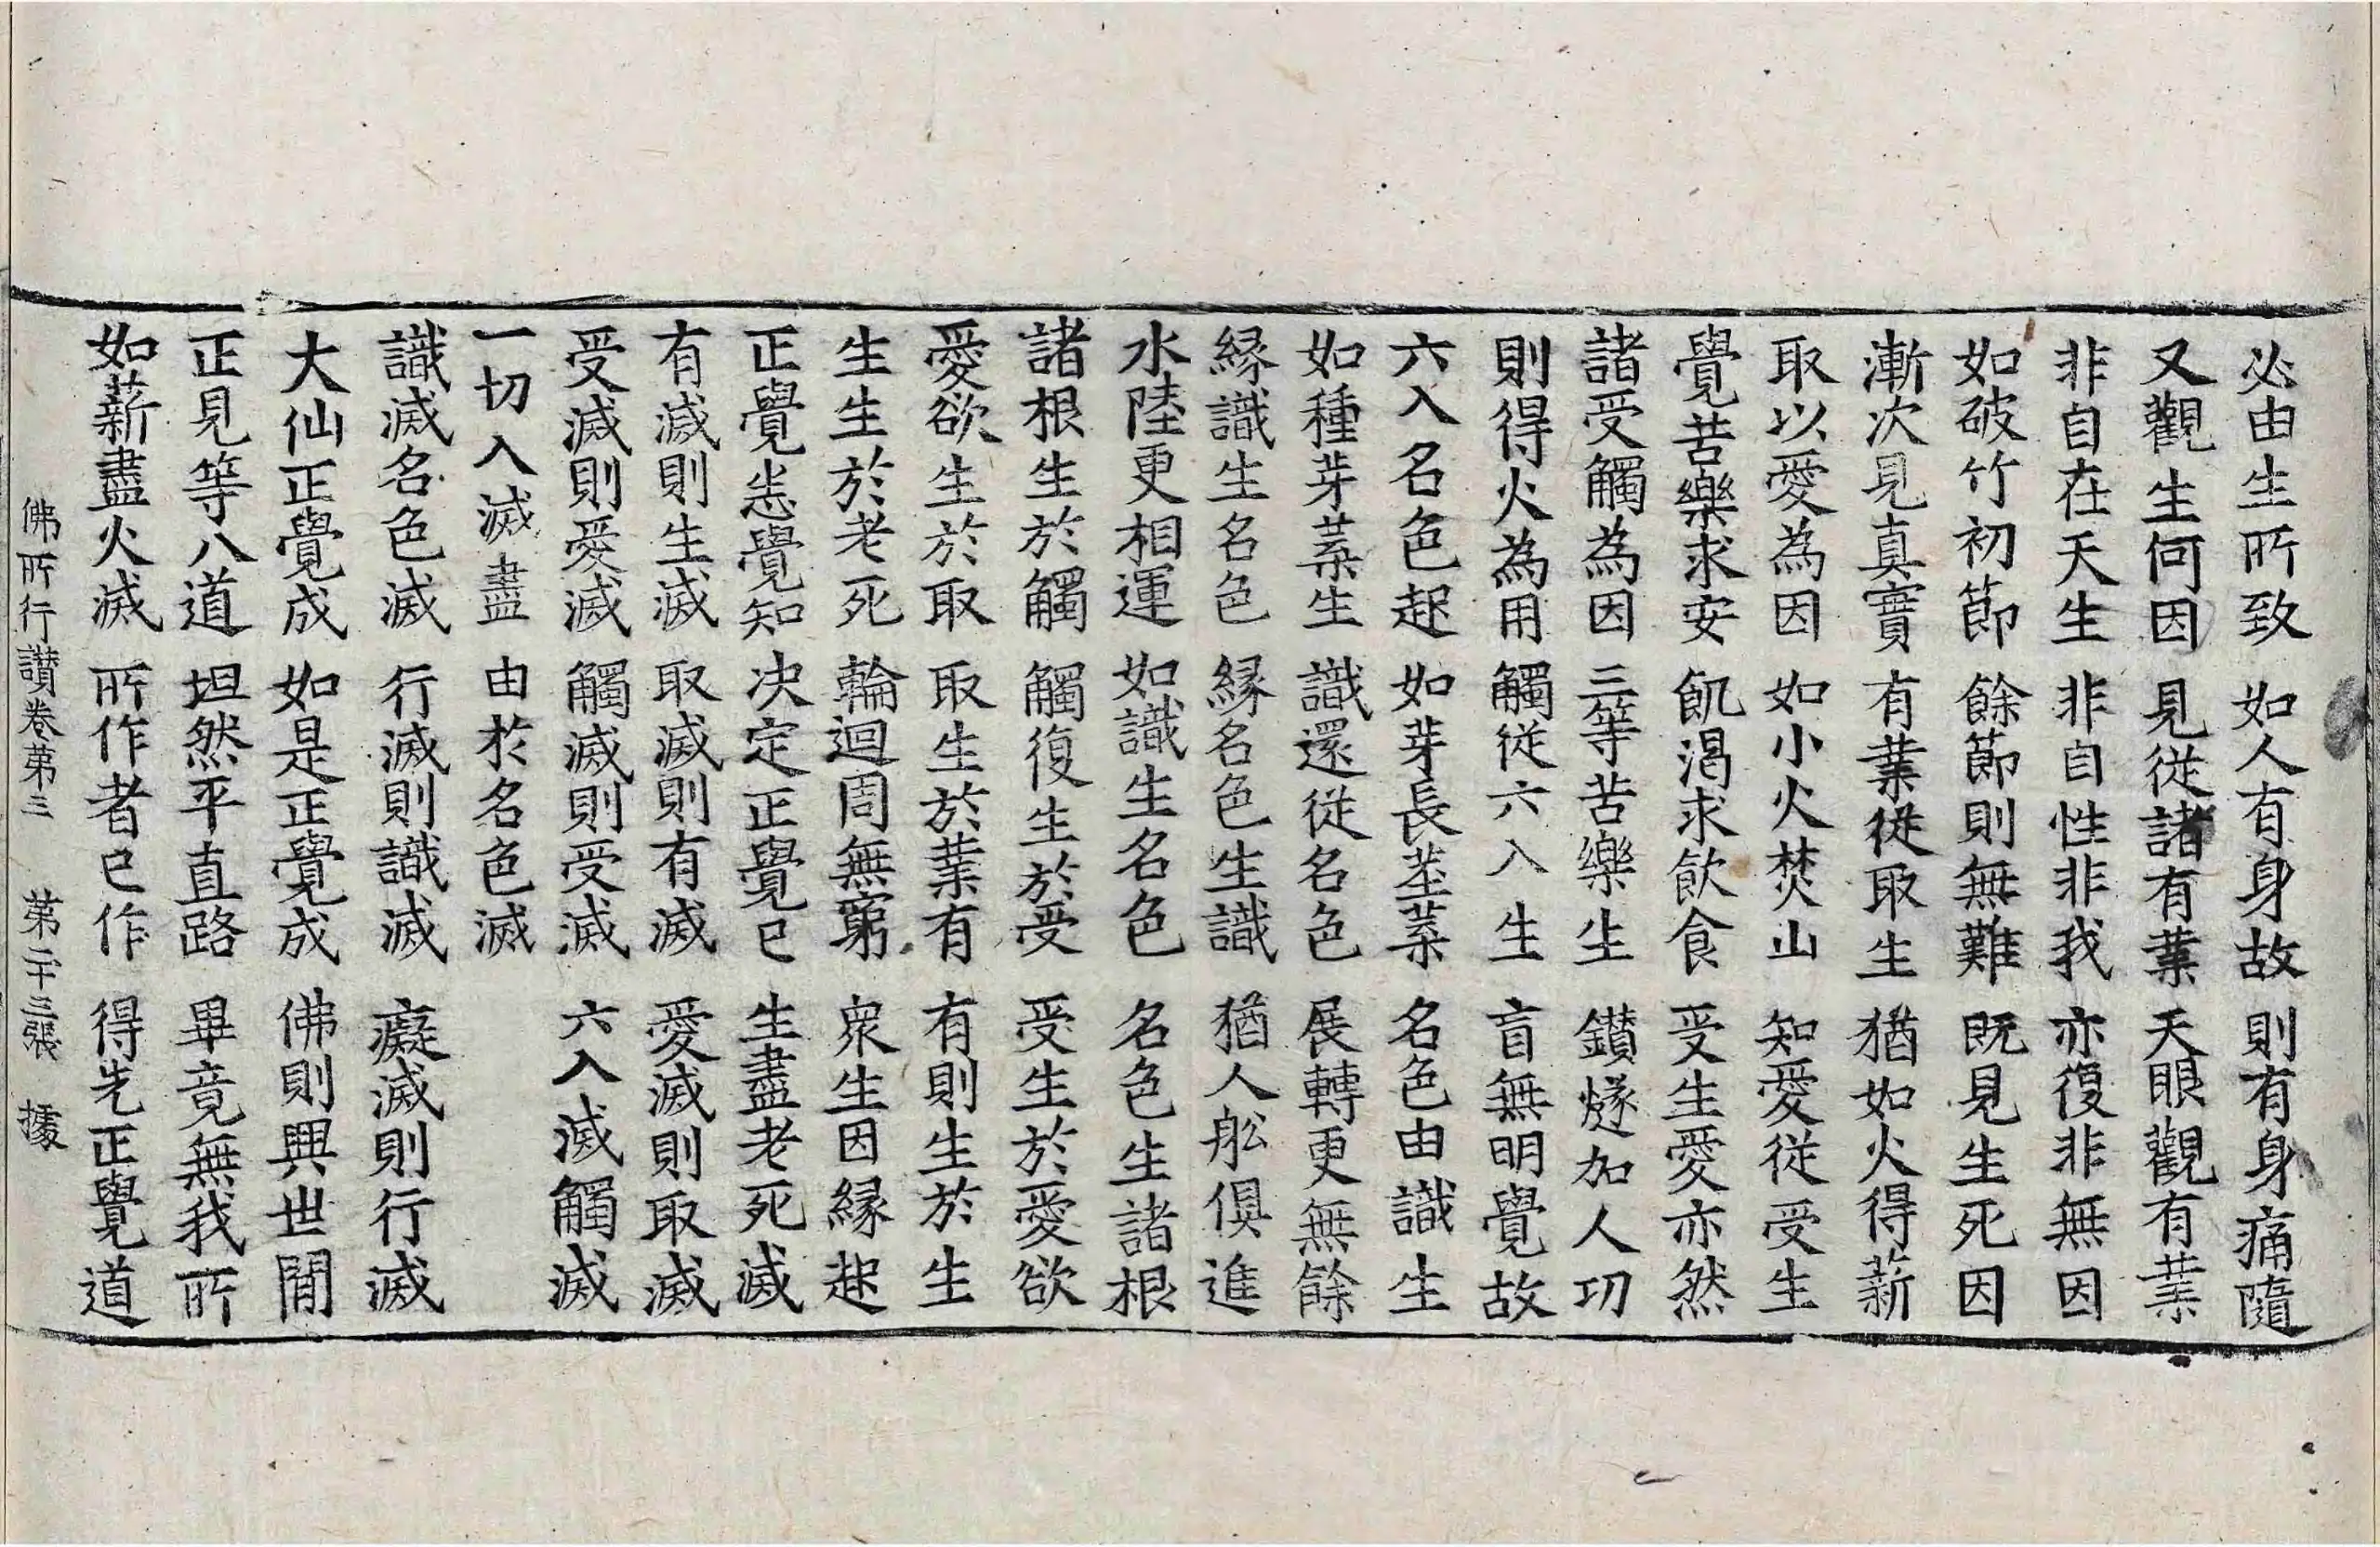 必由生所致 如人有身故 則有身痛隨
又觀生何因 見從諸有業 天眼觀有業
非自在天生 非自性非我 亦復非無因
如破竹初節 餘節則無難 既見生死因
漸次見真實 有業從取生 猶如火得薪
取以愛為因 如小火焚山 知愛從受生
覺苦樂求安 飢渴求飲食 受生愛亦然
諸受觸為因 三等苦樂生 鑚燧加人功
則得火為用 觸從六入生 盲無明覺故
六入名色起 如芽長莖葉 名色由識生
如種芽葉生 識還從名色 展轉更無餘
縁識生名色 縁名色生識 猶人舩俱進
水陸更相運 如識生名色 名色生諸根
諸根生於觸 觸復生於受 受生於愛欲
愛欲生於取 取生於業有 有則生於生
生生於老死 輪迴周無窮 衆生因縁起
正覺悉覺知 决定正覺已 生盡老死滅
有滅則生滅 取滅則有滅 愛滅則取滅
受滅則愛滅 觸滅則受滅 六入滅觸滅
一切入滅盡 由於名色滅
識滅名色滅 行滅則識滅 癡滅則行滅
大仙正覺成 如是正覺成 佛則興世間
正見等八道 坦然平直路 畢竟無我所
如薪盡火滅 所作者已作 得先正覺道
佛所行讃卷第三 第二十三張 㨿